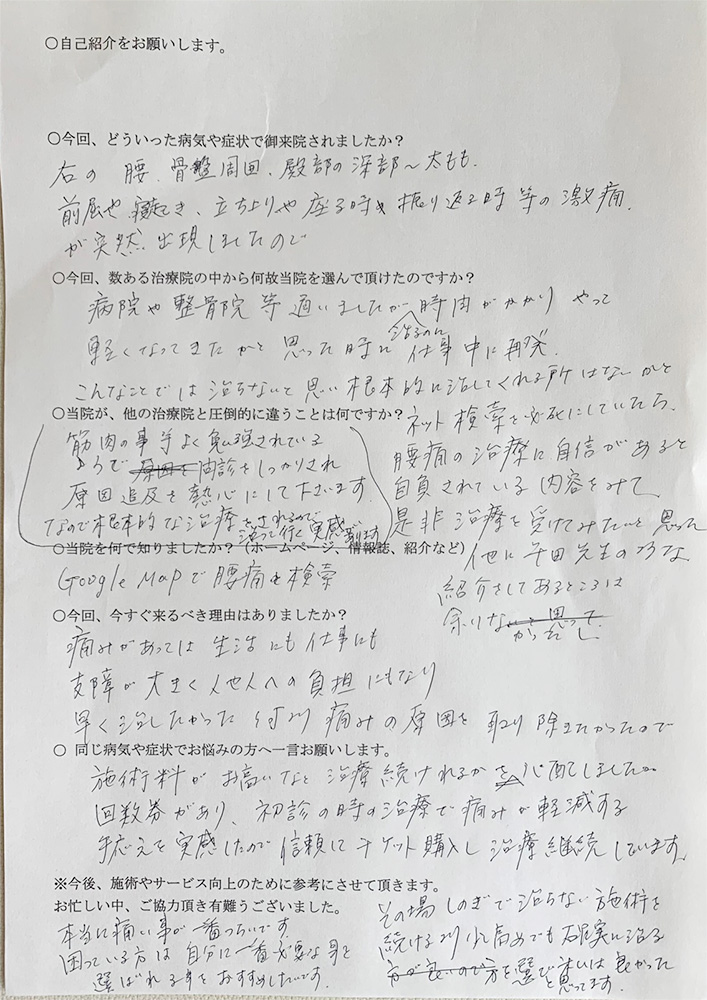 ○自己紹介をお願いします。
○今回、どういった病気や症状で御来院されましたか？
右の 腰、骨盤周囲、殿部の深部〜太もも、
前屈や 寝起き、立ち上りや 座る時や 振り返る時 等の 激痛
が突然 出現しましたので
○今回、数ある治療院の中から何故当院を選んで頂けたのですか？
病院や 整骨院 等 通いましたが 時間がかかり やっと
軽くなってきたかと 思った時に 仕事中に再発。
治るのに
こんなことでは 治らないと思い 根本的に治してくれる所はないかと
ネット検索を必死にしていたら、
腰痛の治療に自信があると
自負されている 内容をみて、
是非 治療を受けてみたいと思った
他に 平田先生の
紹介をしてあるところは
余りなかったし、
○当院が、他の治療院と圧倒的に違うことは何ですか？
筋肉の事等よく勉強されている
ようで 問診をしっかりされ
原因追及を熱心にして下さいます。
なので根本的な治療をされるので
治って行く実感があります
○当院を何で知りましたか？（ホームページ、情報誌、紹介など）
Google Mapで 腰痛を検索
○今回、今すぐ来るべき理由はありましたか？
痛みがあっては 生活にも仕事にも
支障が 大きく 他人への負担にもなり
早く治したかった 何より 痛みの原因を 取り除きたかったので
○ 同じ病気や症状でお悩みの方へ一言お願いします。
施術料が お高いなと 治療続けれるか 心配しましたが
回数券があり、初診の時の治療で 痛みが軽減する
手応えを実感したので 信頼して チケット購入し 治療継続しています。
※今後、施術やサービス向上のために参考にさせて頂きます。
お忙しい中、ご協力頂き有難うございました。
本当に痛い事が一番つらいです。
困っている方は 自分に一番必要な事を
選ばれる事をおすすめしたいです。
その場しのぎで治らない施術を
続けるより 少し高めでも 確実に治る
方を選び 良かった
と思ってます。